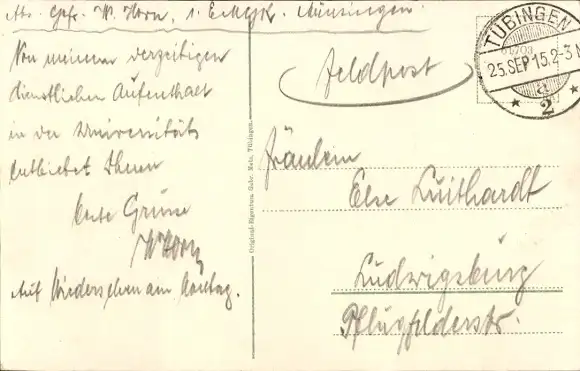 Abs. Gefr. W. Horn, 1. E. Münsingen.
Von meinem derzeitigen
dienstlichen Aufenthalt
in der Universität
entbietet Ihnen
beste Grüsse
WHorn
Auf Wiedersehen am Montag.
Original-Eigentum Gebr. Metz, Tübingen.
Feldpost
TÜBINGEN
25.SEP.15.2-3N
* a *
2
Fräulein
Else Luithardt
Ludwigsburg
Pflugfelderstr.